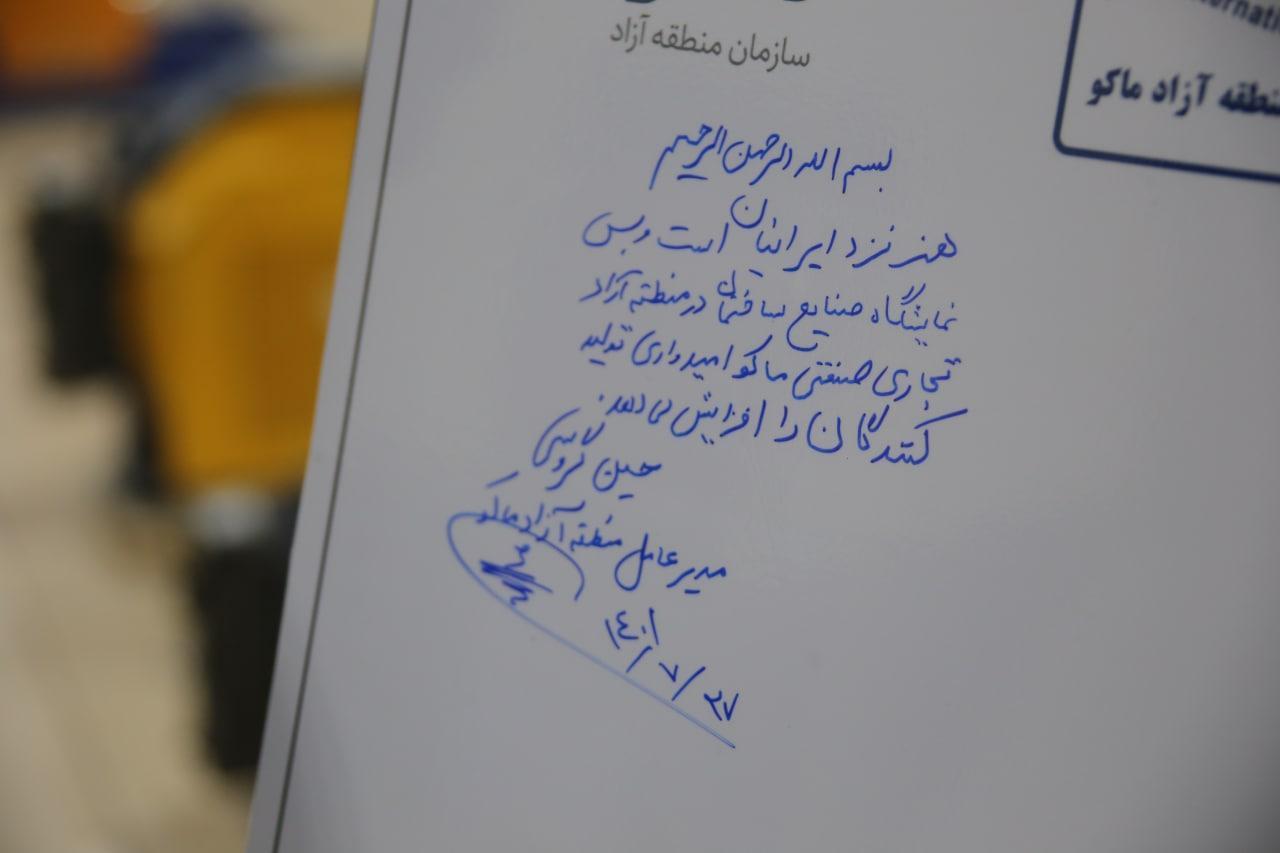 سازمان منطقه آزاد
منطقه آزاد ماکو
بسم الله الرحمن الرحیم
هنر نزد ایرانیان است و بس
نمایشگاه صنایع ساختمان در منطقه آزاد
تجاری صنعتی ماکو امیدواری تولید
کنندگان را افزایش می دهد.
حسین گروسی
مدیر عامل منطقه آزاد ماکو
۱۴۰۱/۷/۲۷